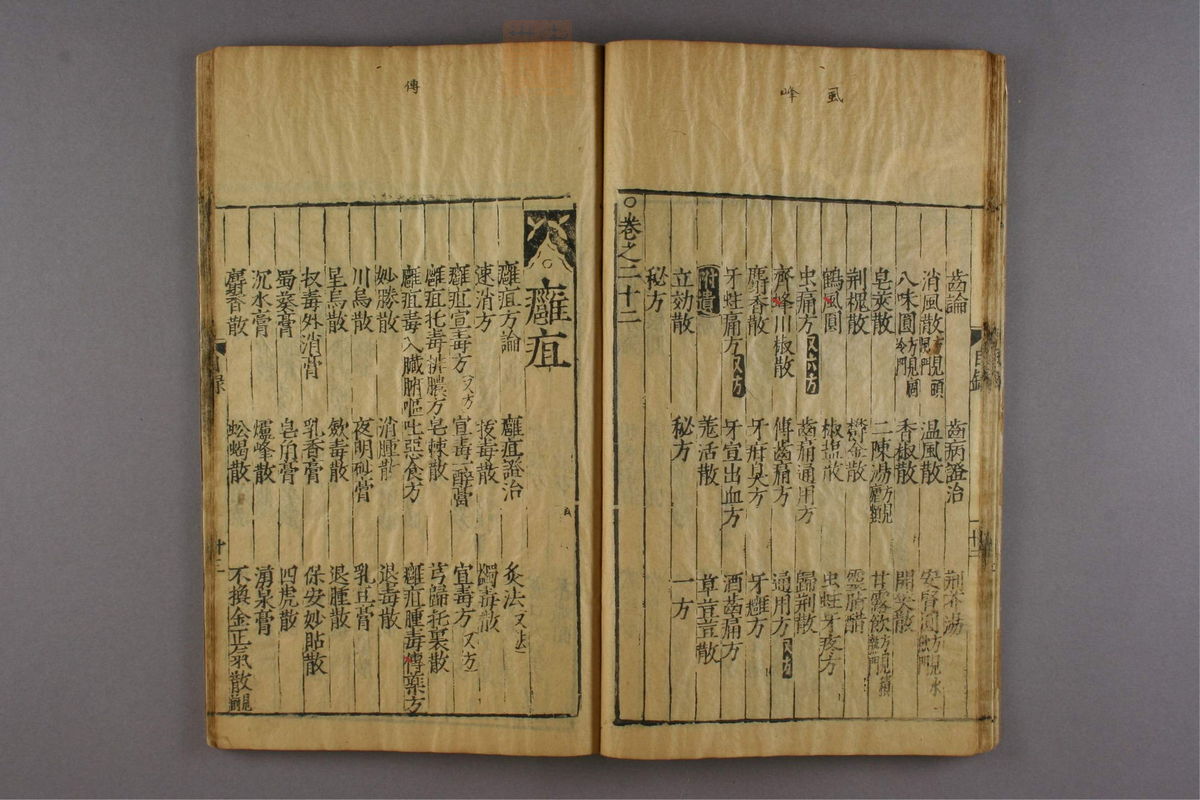 風
峰
齒論 齒病證治 荊芥湯
消風散方見頭風門 温風散 安腎圓方見水飲門
八味圓方見痼冷門 香椒散 開笑散
皂莢散 二陳湯方見瘧類 甘露飲方見積熱門
荊槐散 鬱金散
鶴風圓 椒塩散 虫蛀牙疼方
虫痛方又六方 齒痛通用方 歸荊散
齊峰川椒散 傅齒痛方 通用方又方
麝香散 牙疳臭方 牙癰方
牙蛀痛方又方 牙宣出血方 酒齒痛方
附遺
立効散 羗活散 草荳荳散
秘方 秘方 一方
○卷之二十二
目録
十二
傅
○癰疽
癰疽方論 癰疽證治 灸法又法
速消方 拔毒散 蠲毒散
癰疽宣毒方又方 宣毒一醉膏 宣毒方又方
癰疽托毒排膿方 皂棘散 芎歸托裏散
癰疽毒入臟腑嘔吐惡食方 癰疽腫毒傅藥方
妙勝散 消腫散 退毒散
川烏散 夜明砂膏 乳豆膏
星烏散 斂毒散 退腫散
拔毒外消膏 乳香膏 保安妙貼散
蜀葵膏 皂角膏 四虎散
沉水膏 爐峰散 湧泉膏
麝香散 蜈蝎散 不換金正氣散
目録
十三